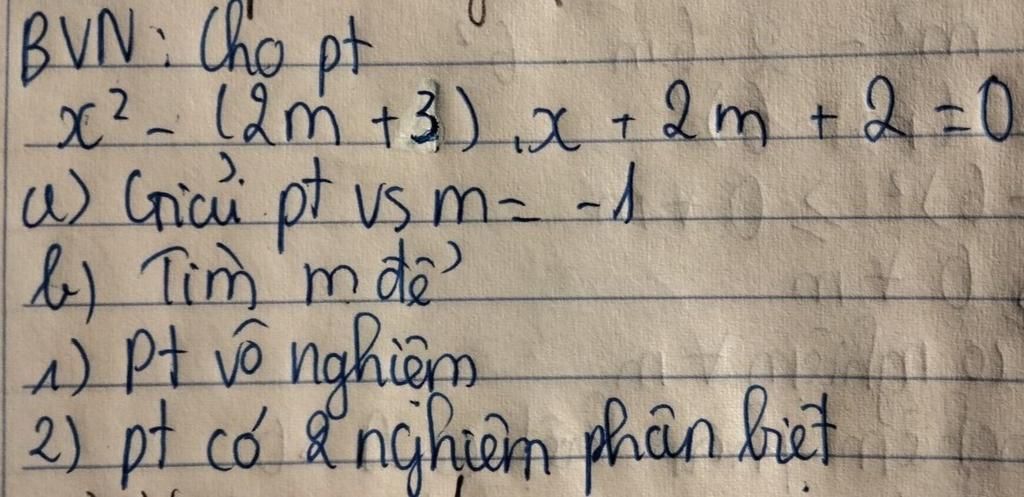 BVN: Cho pt
x² - (2m + 3).x + 2m + 2 = 0
a) Giải pt vs m = -1
b) Tìm m để
1) pt vô nghiệm
2) pt có 2 nghiệm phân biệt